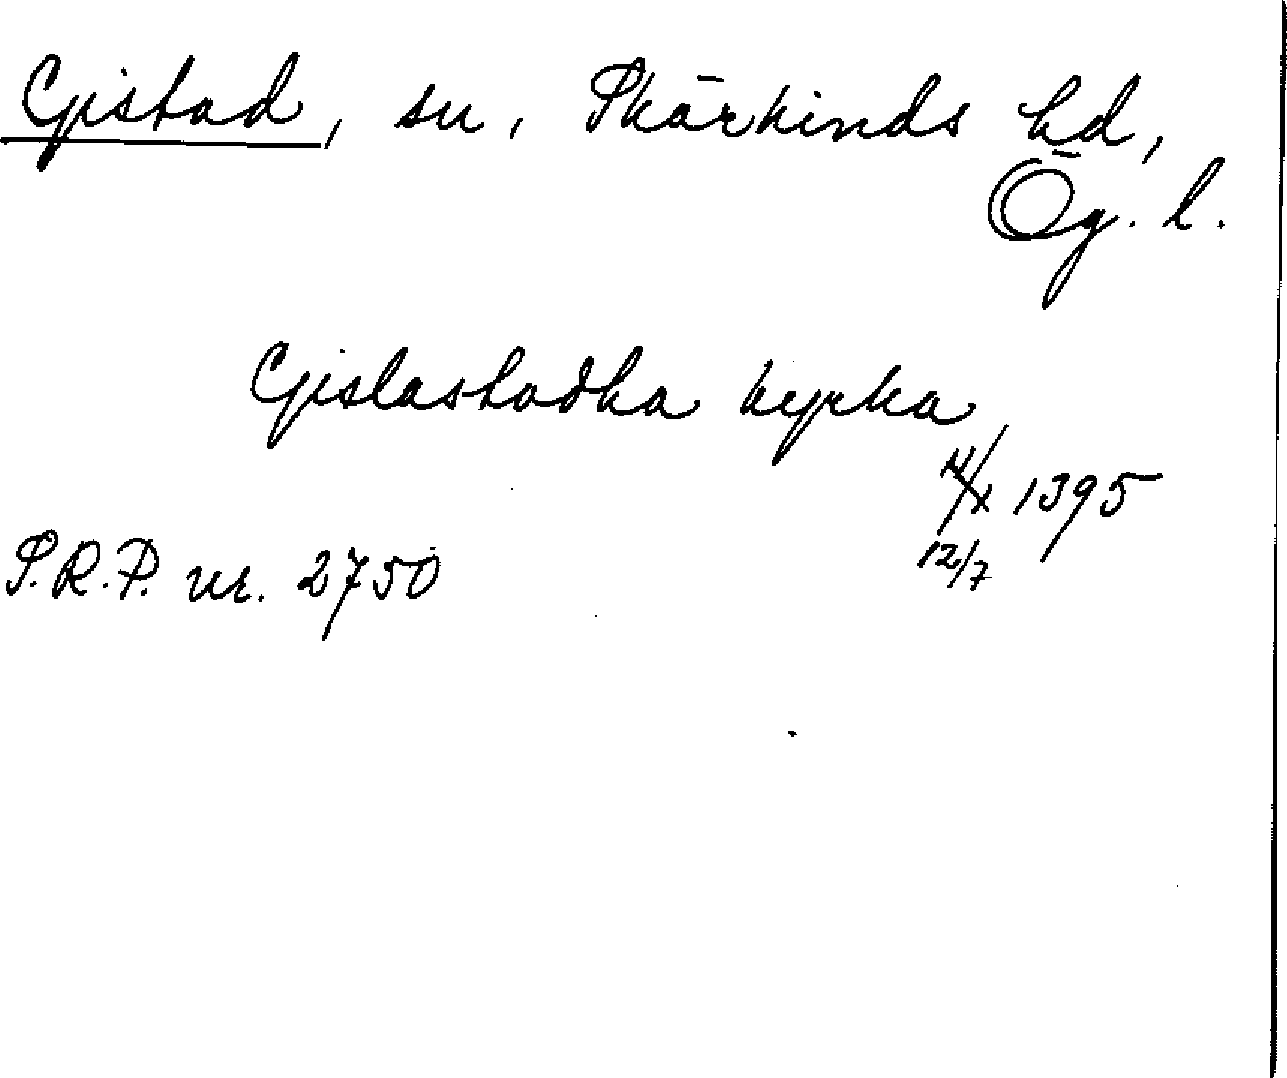 Gistad, sn, Skärkinds hd,
Ög. l.
Gislastadha kyrka
1395
12/7
S.R.P. nr. 2750